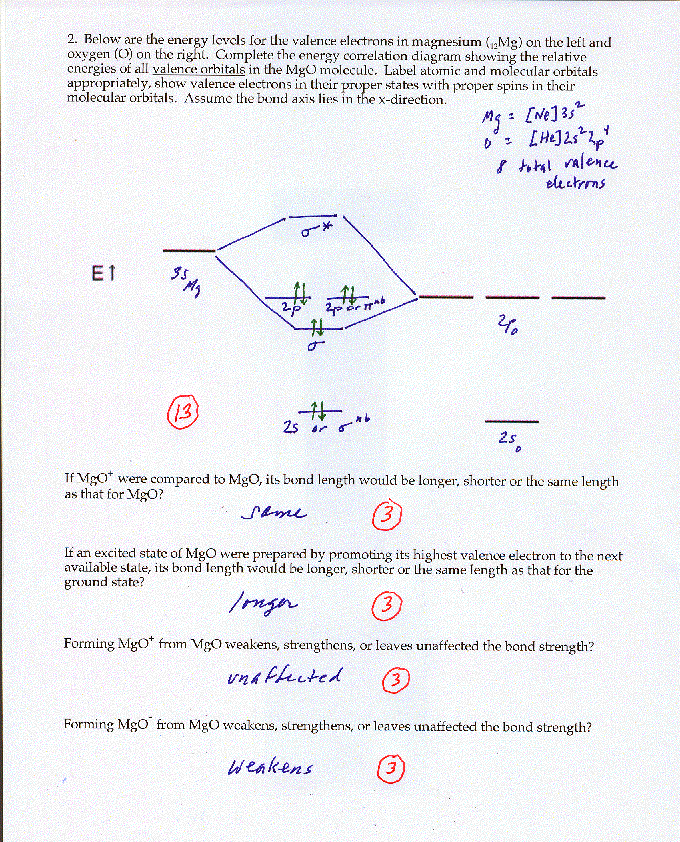 2. Below are the energy levels for the valence electrons in magnesium (₁₂Mg) on the left and
oxygen (O) on the right. Complete the energy correlation diagram showing the relative
energies of all valence orbitals in the MgO molecule. Label atomic and molecular orbitals
appropriately, show valence electrons in their proper states with proper spins in their
molecular orbitals. Assume the bond axis lies in the x-direction.
Mg = [Ne]3s²
O = [He]2s²2p⁴
8 total valence
electrons
σ*
E↑
3s
Mg
2p 2p or π^nb
σ
2p_O
13
2s or σ^nb
2s_O
If MgO⁺ were compared to MgO, its bond length would be longer, shorter or the same length
as that for MgO?
same 3
If an excited state of MgO were prepared by promoting its highest valence electron to the next
available state, its bond length would be longer, shorter or the same length as that for the
ground state?
longer 3
Forming MgO⁺ from MgO weakens, strengthens, or leaves unaffected the bond strength?
unaffected 3
Forming MgO⁻ from MgO weakens, strengthens, or leaves unaffected the bond strength?
weakens 3